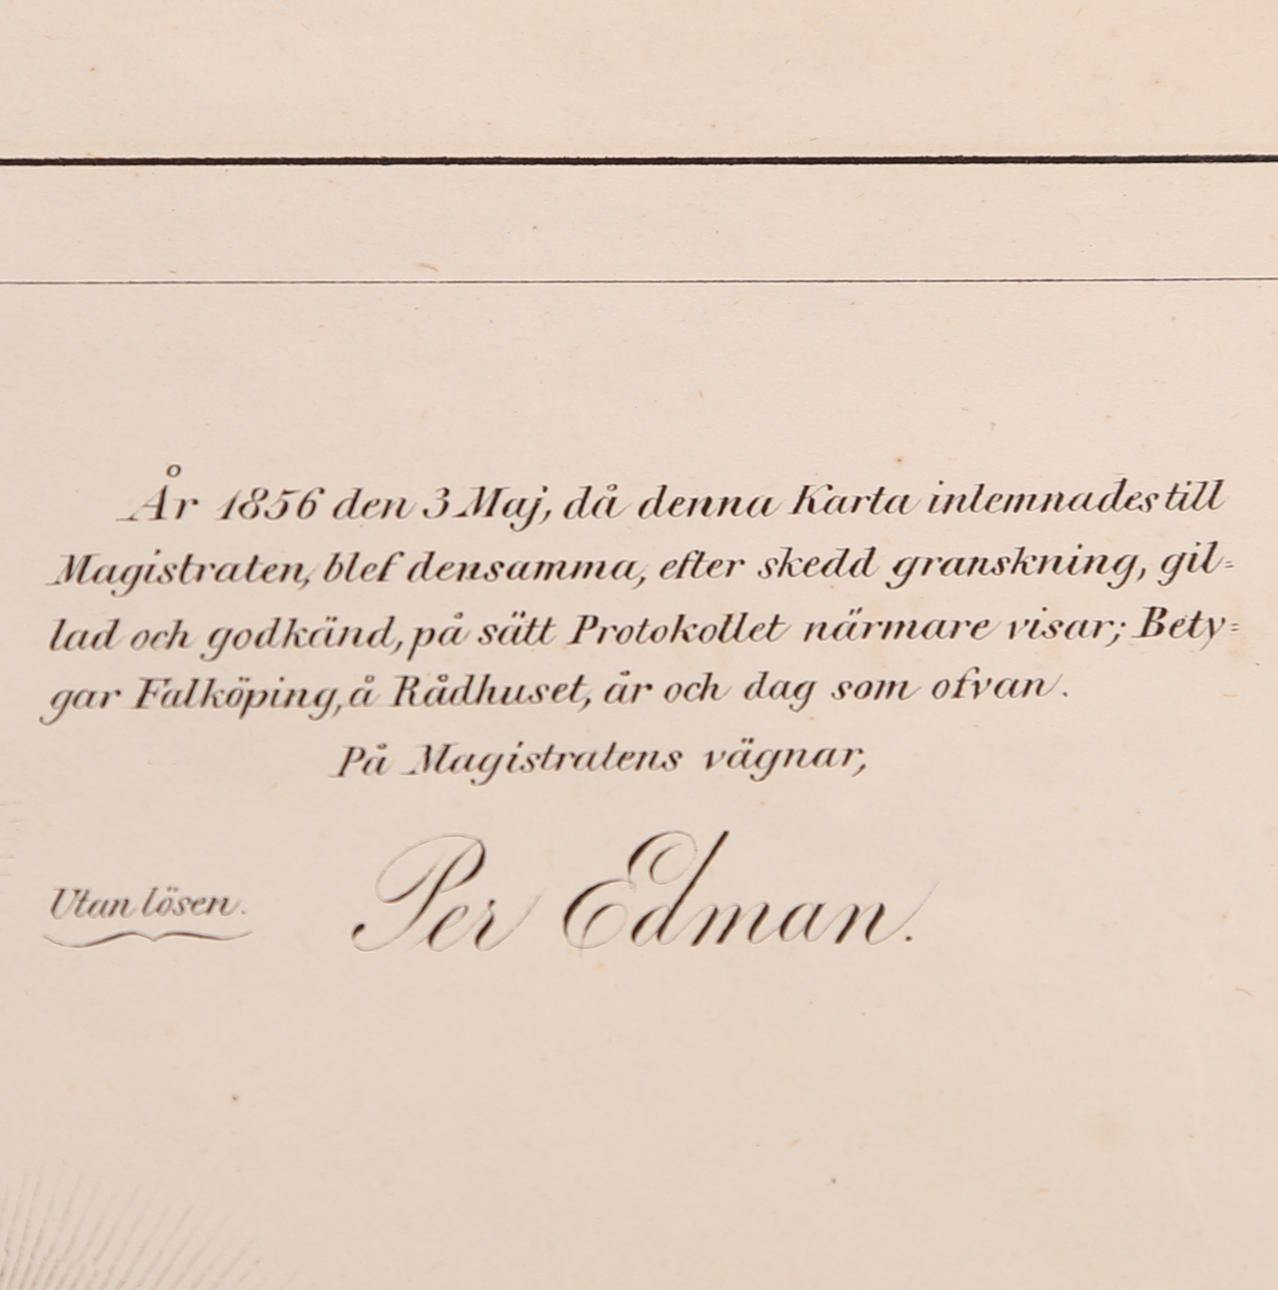 År 1856 den 3 Maj, då denna Karta inlemnades till
Magistraten, blef densamma, efter skedd granskning, gil=
lad och godkänd, på sätt Protokollet närmare visar; Bety=
gar Falköping, å Rådhuset, år och dag som ofvan.
På Magistratens vägnar,
Utan lösen. Per Edman.